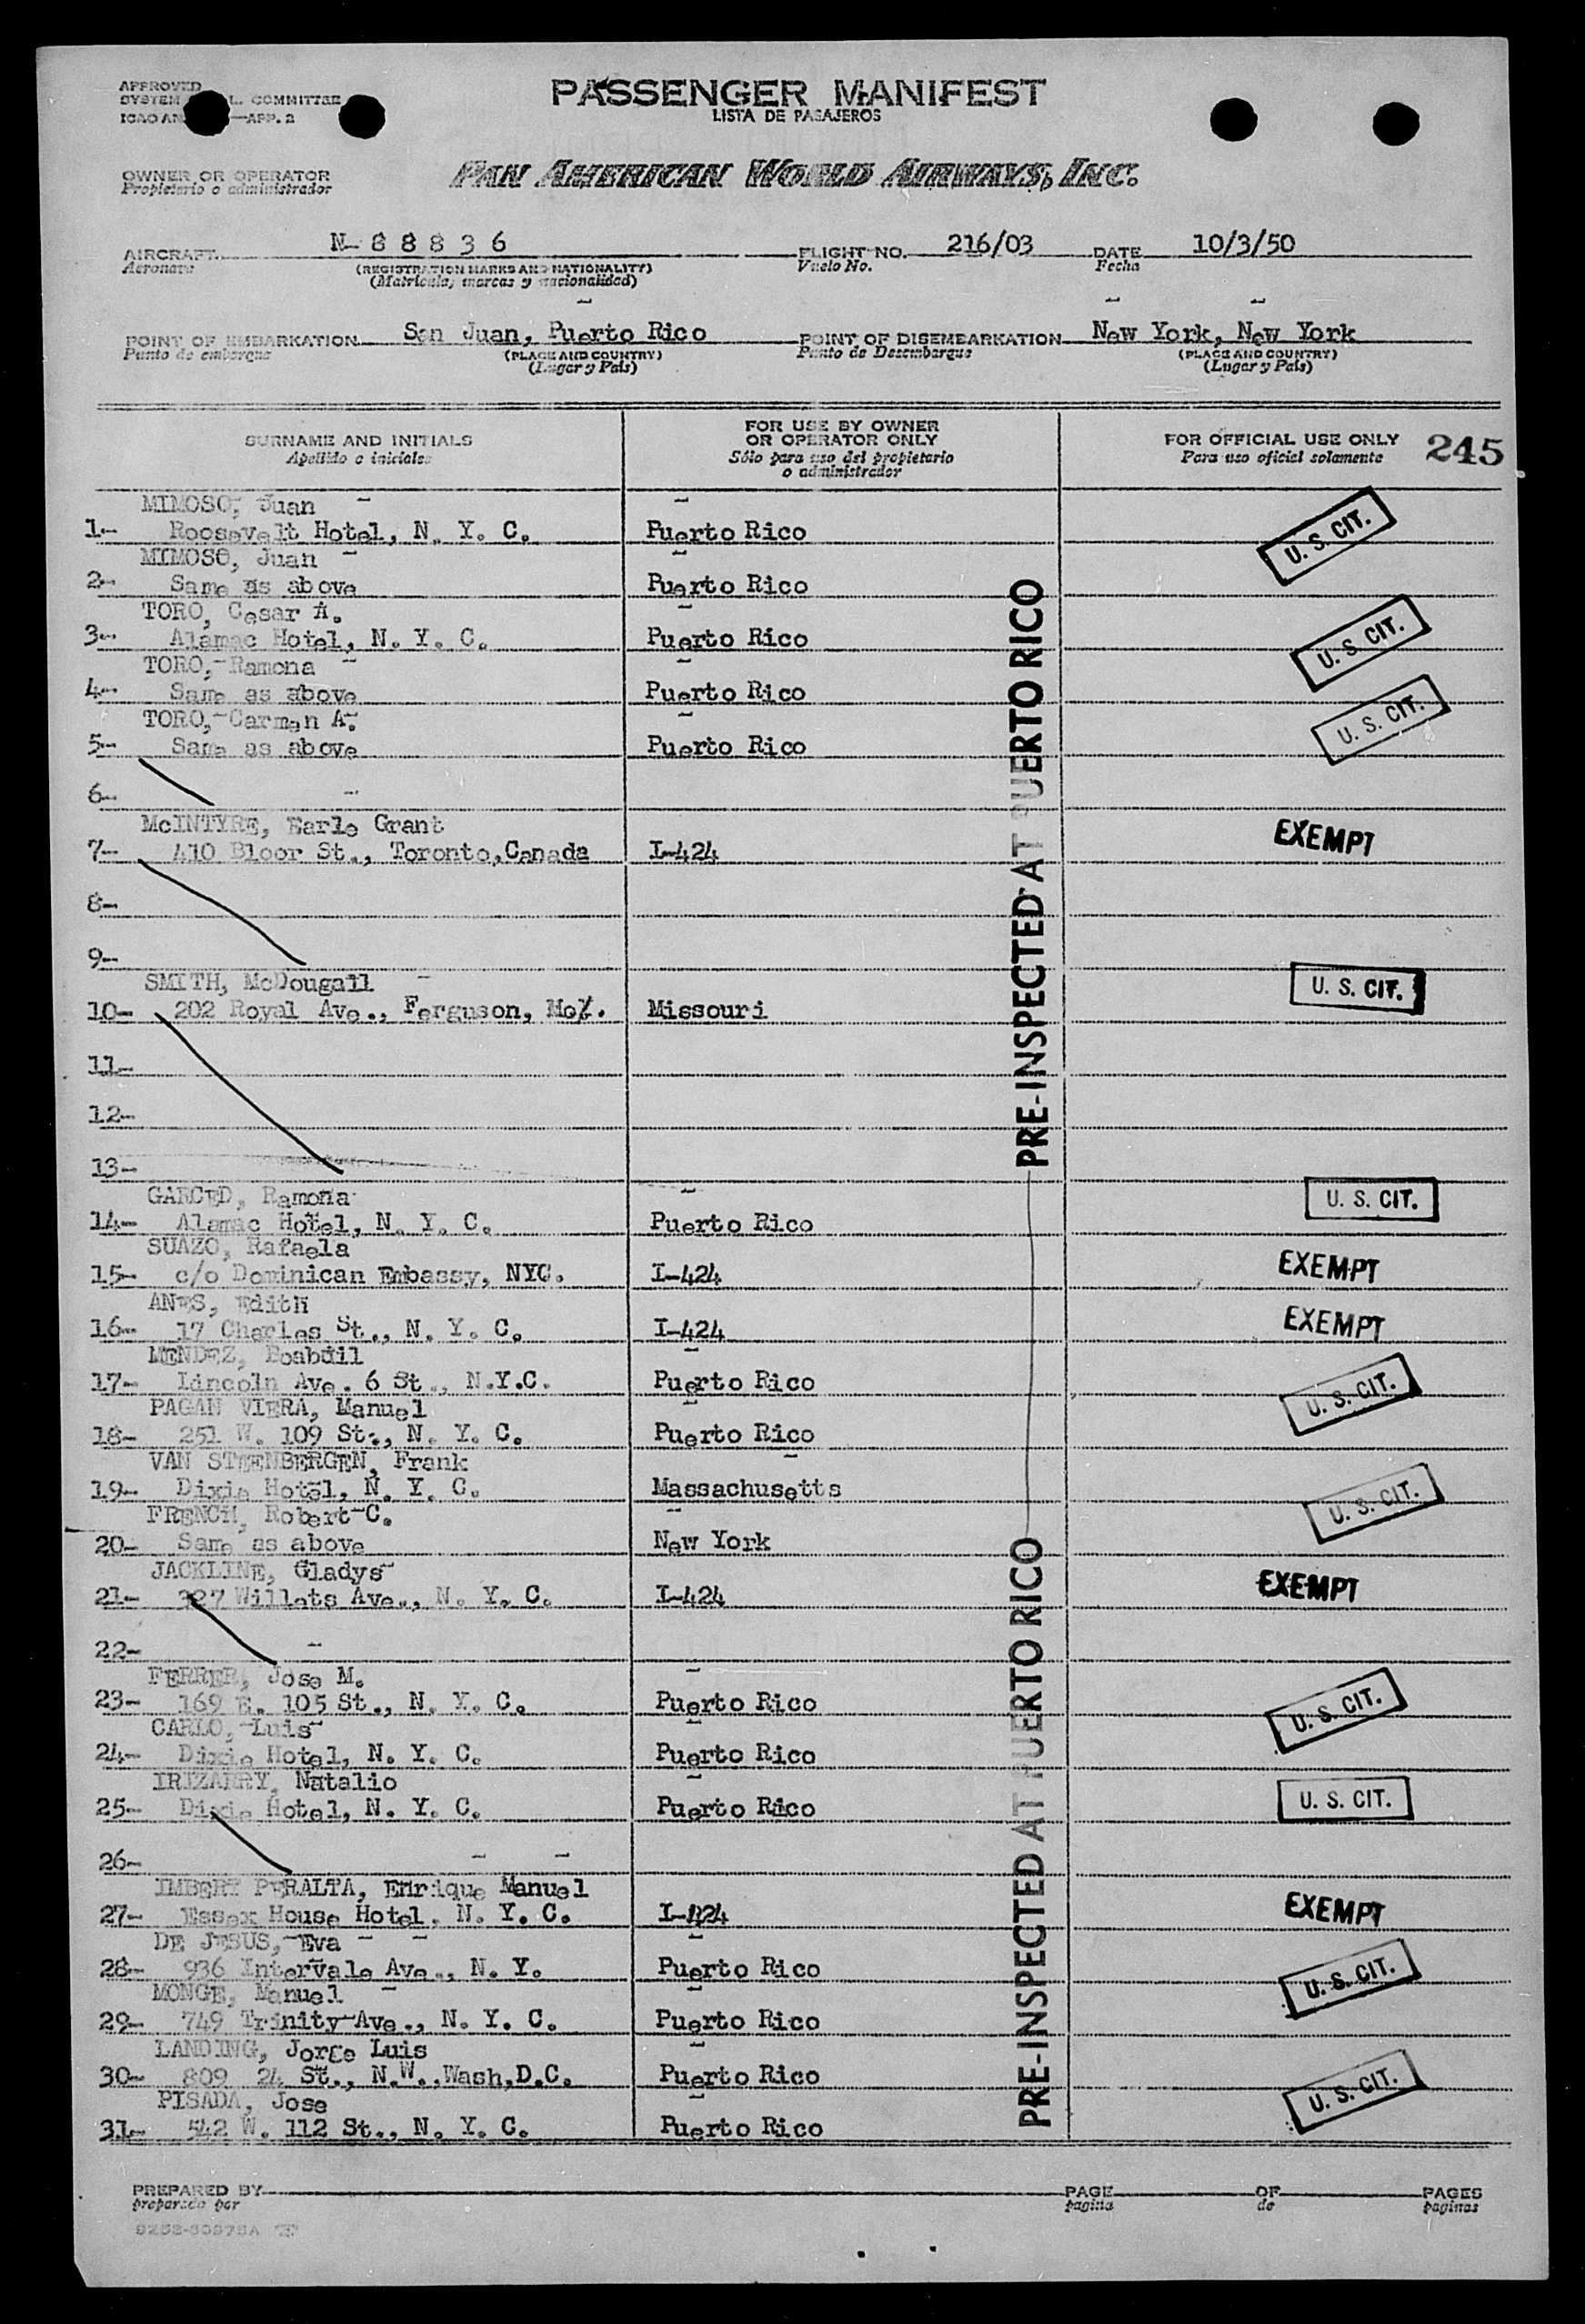 APPROVED
SYSTEM L. COMMITTEE
ICAO AN —APP. 2
PASSENGER MANIFEST
LISTA DE PASAJEROS
OWNER OR OPERATOR
Propietario o administrador
PAN AMERICAN WORLD AIRWAYS, INC.
AIRCRAFT N-88836 FLIGHT NO. 216/03 DATE 10/3/50
Aeronave (REGISTRATION MARKS AND NATIONALITY) Vuelo No. Fecha
(Matricula, marcas y nacionalidad)
POINT OF EMBARKATION San Juan, Puerto Rico POINT OF DISEMBARKATION New York, New York
Punto de embarque (PLACE AND COUNTRY) Punto de Desembarque (PLACE AND COUNTRY)
(Lugar y País) (Lugar y País)
SURNAME AND INITIALS
Apellido e iniciales
FOR USE BY OWNER
OR OPERATOR ONLY
Sólo para uso del propietario
o administrador
FOR OFFICIAL USE ONLY 245
Para uso oficial solamente
MIMOSO, Juan
1- Roosevelt Hotel, N. Y. C. Puerto Rico U. S. CIT.
MIMOSO, Juan
2- Same as above Puerto Rico
TORO, Cesar A.
3- Alamac Hotel, N. Y. C. Puerto Rico U. S. CIT.
TORO, Ramona
4- Same as above Puerto Rico
TORO, Carmen A.
5- Same as above Puerto Rico U. S. CIT.
6-
McINTYRE, Earle Grant
7- 410 Bloor St., Toronto,Canada I-424 EXEMPT
8-
9-
SMITH, McDougall
10- 202 Royal Ave., Ferguson, Mo. Missouri U. S. CIT.
11-
12-
13-
GARCED, Ramona
14- Alamac Hotel, N. Y. C. Puerto Rico U. S. CIT.
SUAZO, Rafaela
15- c/o Dominican Embassy, NYC. I-424 EXEMPT
ANES, Edith
16- 17 Charles St., N. Y. C. I-424 EXEMPT
MENDEZ, Boabdil
17- Lincoln Ave. 6 St., N.Y.C. Puerto Rico U. S. CIT.
PAGAN VIERA, Manuel
18- 251 W. 109 St., N. Y. C. Puerto Rico
VAN STEENBERGEN, Frank
19- Dixie Hotel, N. Y. C. Massachusetts U. S. CIT.
FRENCH, Robert C.
20- Same as above New York
JACKLINE, Gladys
21- 327 Willets Ave., N. Y. C. I-424 EXEMPT
22-
FERRER, Jose M.
23- 169 E. 105 St., N. Y. C. Puerto Rico U. S. CIT.
CARLO, Luis
24- Dixie Hotel, N. Y. C. Puerto Rico
IRIZARRY, Natalio
25- Dixie Hotel, N. Y. C. Puerto Rico U. S. CIT.
26-
IMBERT PERALTA, Enrique Manuel
27- Essex House Hotel, N. Y. C. I-424 EXEMPT
DE JESUS, Eva
28- 936 Intervale Ave., N. Y. Puerto Rico U. S. CIT.
MONGE, Manuel
29- 749 Trinity Ave., N. Y. C. Puerto Rico
LANDING, Jorge Luis
30- 809 24 St., N.W.,Wash,D.C. Puerto Rico U. S. CIT.
PISADA, Jose
31- 542 W. 112 St., N. Y. C. Puerto Rico
PRE-INSPECTED AT PUERTO RICO
PRE-INSPECTED AT PUERTO RICO
PREPARED BY PAGE OF PAGES
preparado por pagina de paginas